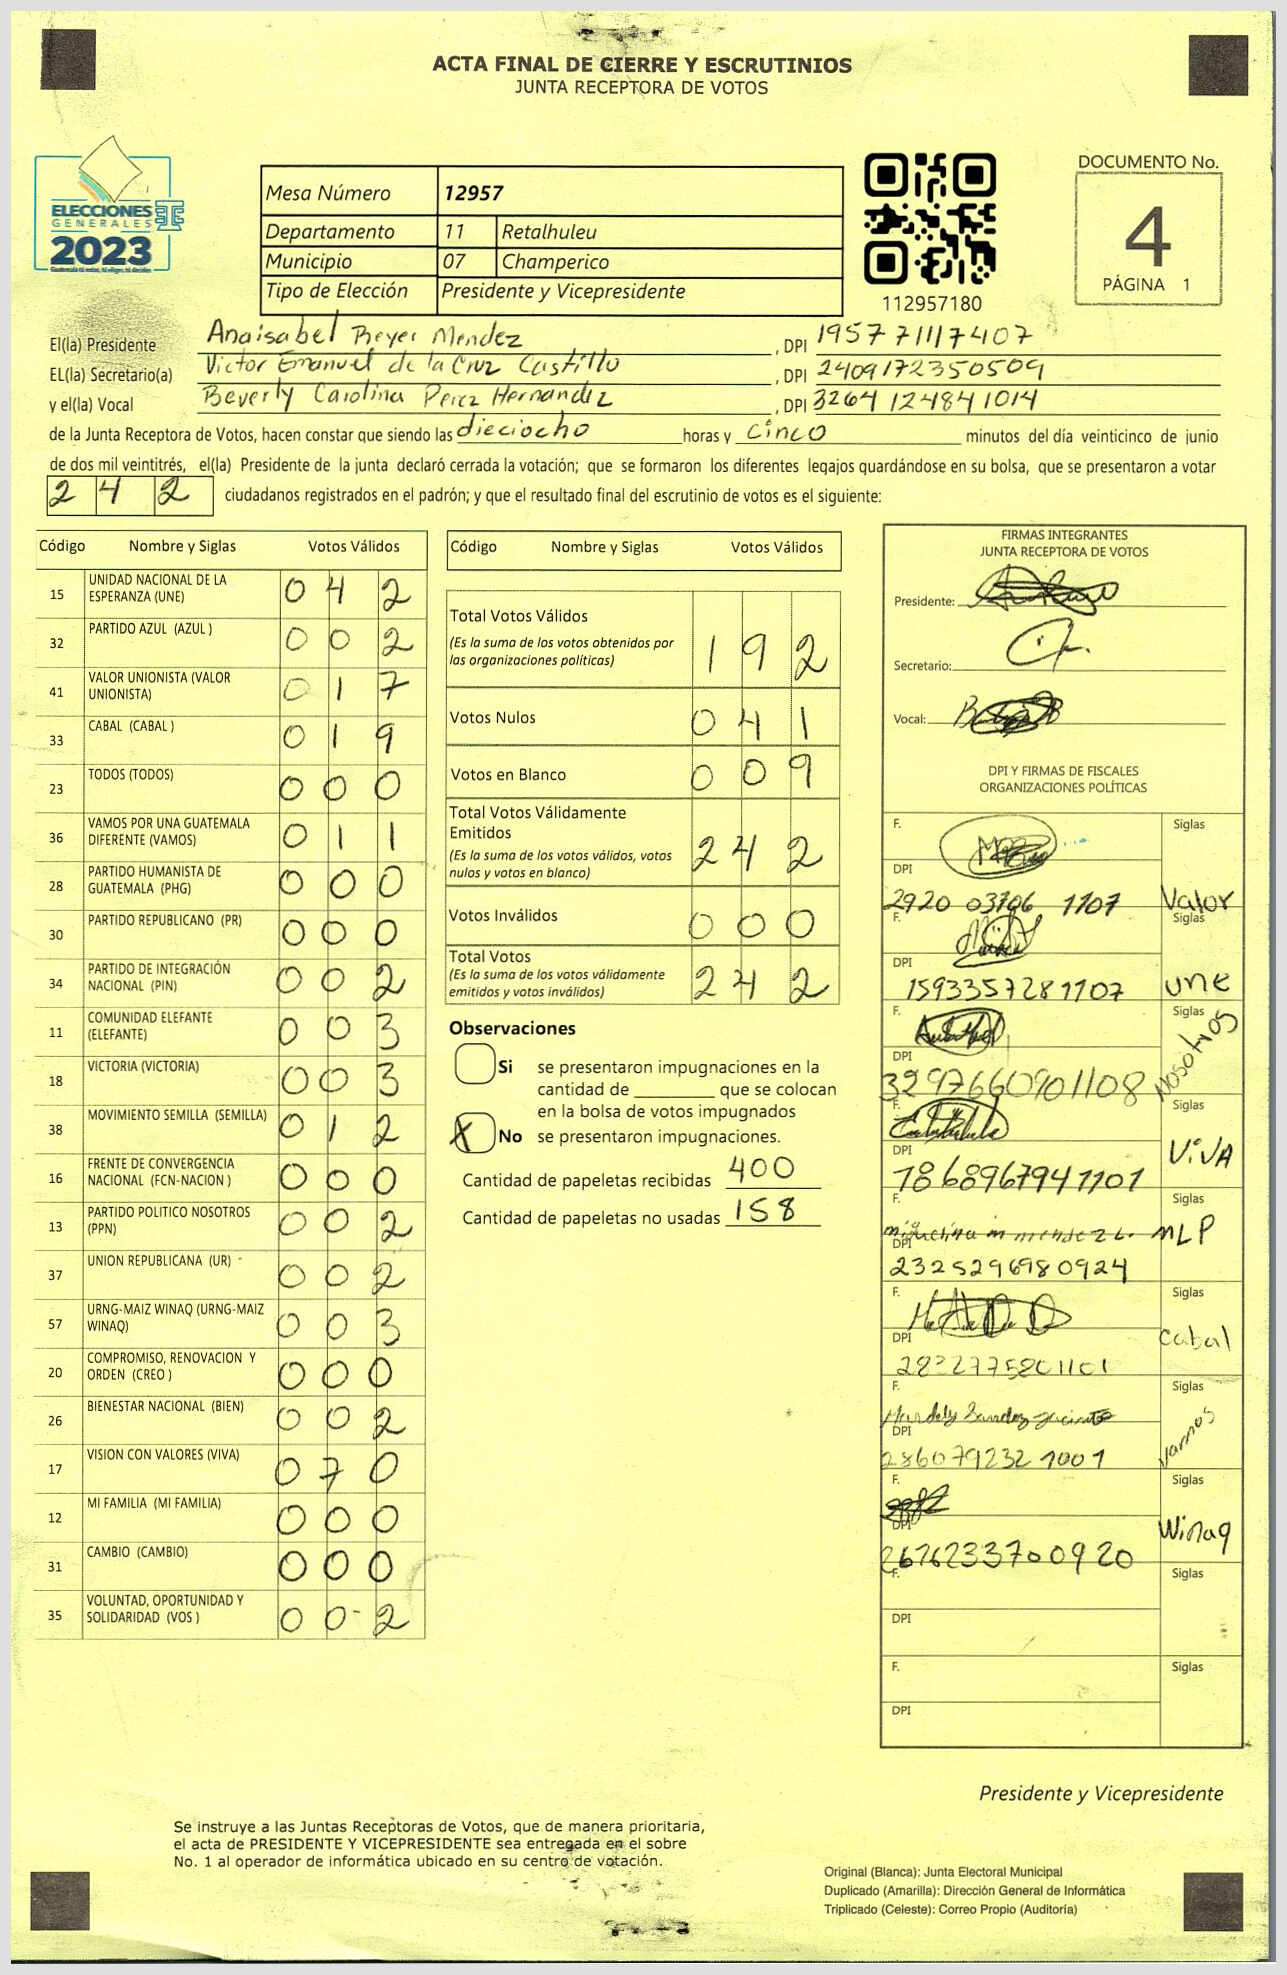 ACTA FINAL DE CIERRE Y ESCRUTINIOS
JUNTA RECEPTORA DE VOTOS
ELECCIONES
GENERALES
2023
Mesa Número 12957
Departamento 11 Retalhuleu
Municipio 07 Champerico
Tipo de Elección Presidente y Vicepresidente
112957180
DOCUMENTO No.
4
PÁGINA 1
El(la) Presidente Anaisabel Reyes Mendez, DPI 1957711117407
EL(la) Secretario(a) Victor Emanuel de la Cruz Castillo, DPI 2409172350509
y el(la) Vocal Beverly Carolina Perez Hernandez, DPI 3264124841014
de la Junta Receptora de Votos, hacen constar que siendo las dieciocho horas y cinco minutos del día veinticinco de junio
de dos mil veintitrés, el(la) Presidente de la junta declaró cerrada la votación; que se formaron los diferentes legajos guardándose en su bolsa, que se presentaron a votar
242 ciudadanos registrados en el padrón; y que el resultado final del escrutinio de votos es el siguiente:
Código Nombre y Siglas Votos Válidos
15 UNIDAD NACIONAL DE LA ESPERANZA (UNE) 0 4 2
32 PARTIDO AZUL (AZUL ) 0 0 2
41 VALOR UNIONISTA (VALOR UNIONISTA) 0 1 7
33 CABAL (CABAL ) 0 1 9
23 TODOS (TODOS) 0 0 0
36 VAMOS POR UNA GUATEMALA DIFERENTE (VAMOS) 0 1 1
28 PARTIDO HUMANISTA DE GUATEMALA (PHG) 0 0 0
30 PARTIDO REPUBLICANO (PR) 0 0 0
34 PARTIDO DE INTEGRACIÓN NACIONAL (PIN) 0 0 2
11 COMUNIDAD ELEFANTE (ELEFANTE) 0 0 3
18 VICTORIA (VICTORIA) 0 0 3
38 MOVIMIENTO SEMILLA (SEMILLA) 0 1 2
16 FRENTE DE CONVERGENCIA NACIONAL (FCN-NACION ) 0 0 0
13 PARTIDO POLITICO NOSOTROS (PPN) 0 0 2
37 UNION REPUBLICANA (UR) 0 0 2
57 URNG-MAIZ WINAQ (URNG-MAIZ WINAQ) 0 0 3
20 COMPROMISO, RENOVACION Y ORDEN (CREO ) 0 0 0
26 BIENESTAR NACIONAL (BIEN) 0 0 2
17 VISION CON VALORES (VIVA) 0 7 0
12 MI FAMILIA (MI FAMILIA) 0 0 0
31 CAMBIO (CAMBIO) 0 0 0
35 VOLUNTAD, OPORTUNIDAD Y SOLIDARIDAD (VOS ) 0 0 2
Código Nombre y Siglas Votos Válidos
Total Votos Válidos 1 9 2
(Es la suma de los votos obtenidos por
las organizaciones políticas)
Votos Nulos 0 4 1
Votos en Blanco 0 0 9
Total Votos Válidamente
Emitidos 2 4 2
(Es la suma de los votos válidos, votos
nulos y votos en blanco)
Votos Inválidos 0 0 0
Total Votos 2 4 2
(Es la suma de los votos válidamente
emitidos y votos inválidos)
Observaciones
Si se presentaron impugnaciones en la
cantidad de ________ que se colocan
en la bolsa de votos impugnados
X No se presentaron impugnaciones.
Cantidad de papeletas recibidas 400
Cantidad de papeletas no usadas 158
FIRMAS INTEGRANTES
JUNTA RECEPTORA DE VOTOS
Presidente:
Secretario:
Vocal:
DPI Y FIRMAS DE FISCALES
ORGANIZACIONES POLÍTICAS
F. Siglas
DPI
2920 03706 1107 Valor
F. Siglas
DPI
1593357281107 une
F. Siglas
DPI
3297660901108 Nosotros
F. Siglas
DPI
1868967941101 ViVA
F. Siglas
DPI MLP
2325296980924
F. Siglas
DPI Cabal
2832775801101
F. Siglas
DPI
2860792321001 Vamos
F. Siglas
DPI Winaq
2676233700920
F. Siglas
DPI
F. Siglas
DPI
Presidente y Vicepresidente
Se instruye a las Juntas Receptoras de Votos, que de manera prioritaria,
el acta de PRESIDENTE Y VICEPRESIDENTE sea entregada en el sobre
No. 1 al operador de informática ubicado en su centro de votación.
Original (Blanca): Junta Electoral Municipal
Duplicado (Amarilla): Dirección General de Informática
Triplicado (Celeste): Correo Propio (Auditoría)